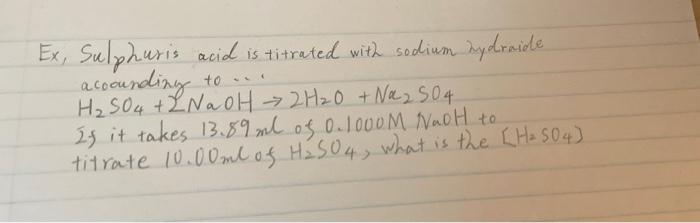 Ex, Sulphuris acid is titrated with sodium hydraide
acoounding to ....
H2SO4 + 2NaOH → 2H2O + Na2SO4
If it takes 13.89 ml of 0.1000M NaOH to
titrate 10.00ml of H2SO4, what is the [H2SO4]